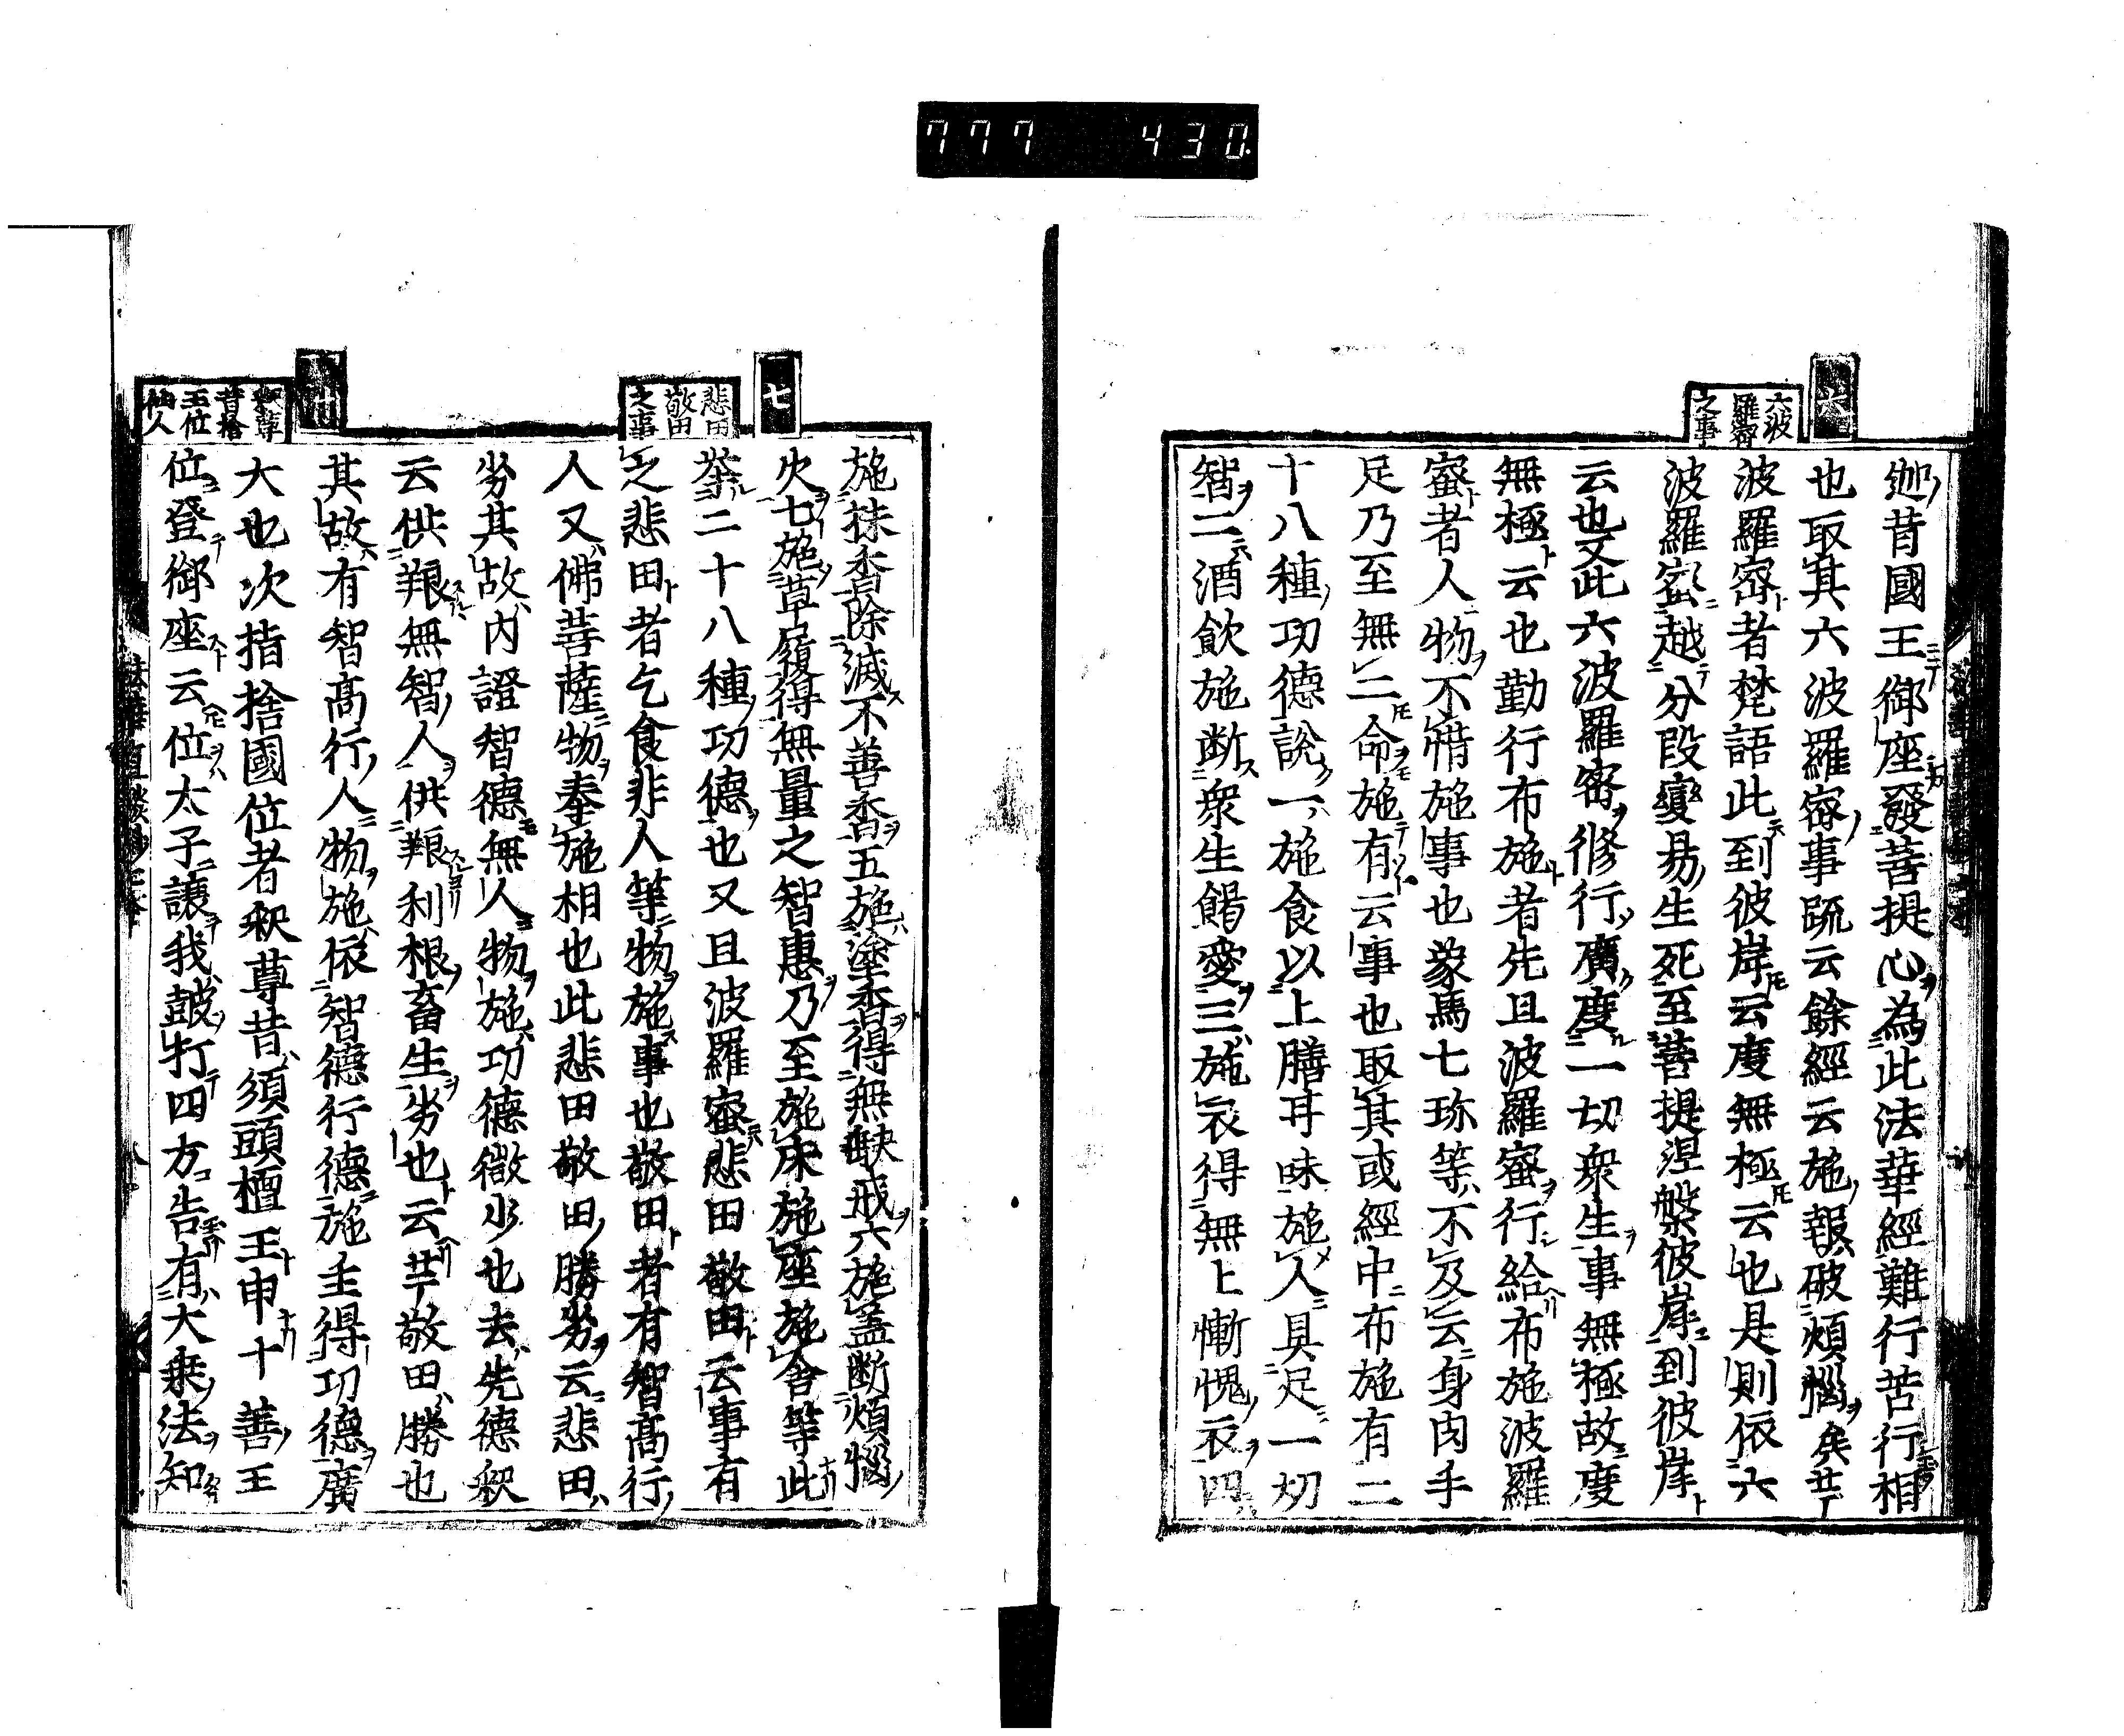 777 430
六
六波
羅密
之事
迦昔國王御座發菩提心為此法華經難行苦行相
也取其六波羅密事疏云餘經云施報破煩惱矣
波羅密者梵語此到彼岸云度無極云也是則依六
波羅密越分段變易生死至菩提涅槃彼岸到彼岸
云也又此六波羅密修行廣度一切衆生事無極故度
無極云也勤行布施者先且波羅蜜行給布施波羅
蜜者人物不惜施事也象馬七珎等不及云身肉手
足乃至無二命施有云事也取其或經中布施有二
十八種功德說一施食以上膳味施人具足一切
智二酒飲施断衆生餲愛三施衣得無上慚愧衣四
七
悲田
敬田
之事
施抹香除滅不善香五施塗香得無缺戒六施盖断煩惱
火七施草履得無量之智惠乃至施床施座施舍等此
荼二十八種功德也又且波羅蜜悲田敬田云事有
之悲田者乞食非人等物施事也敬田者有智高行
人又佛菩薩物奉施相也此悲田敬田勝劣云悲田
劣其故內證智德無人物施功德微少也去先德釈
云供艱無智人供艱利根畜生劣也云敬田勝也
其故有智高行人物施依智德行德施主得功德廣
大也次指捨國位者釈尊昔須頭檀王申十善王
位登御座云位太子讓我皷打四方告有大乗法知
釈尊
昔捨
王位
仙人